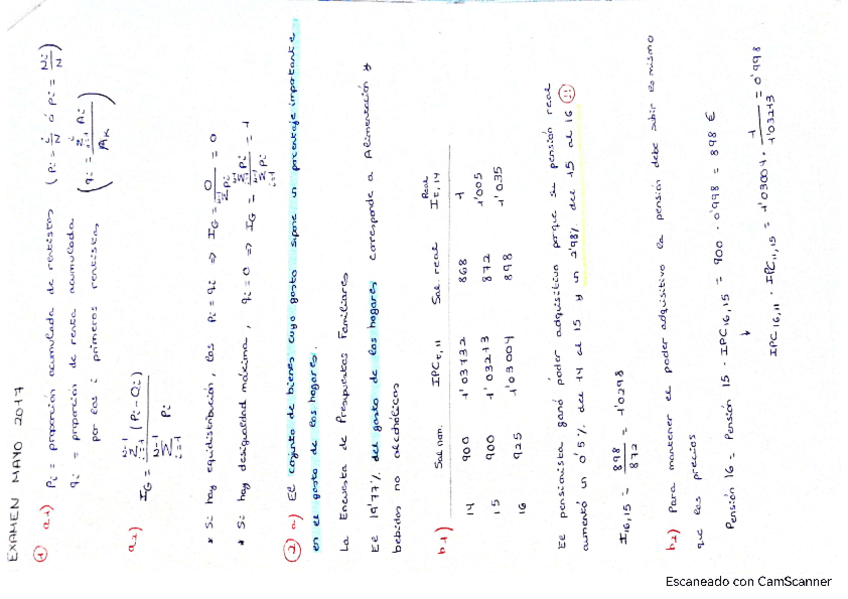 EXAMEN MAYO 2017
① a1) Pi = proporción acumulada de rentistas (Pi = i/N ó Pi = Ni/N)
qi = proporción de renta acumulada por los i primeros rentistas (qi = Σi=1^i Ai / AK)
a2) IG = Σi=1^N-1 (Pi - Qi) / Σi=1^N-1 Pi
* Si hay equidistribución, las Pi = qi ⇒ IG = 0 / Σ^N-1 Pi = 0
* Si hay desigualdad máxima, qi = 0 ⇒ IG = Σi=1^N-1 Pi / Σi=1^N-1 Pi = 1
② a) El conjunto de bienes cuyo gasto supone un porcentaje importante
en el gasto de los hogares.
La Encuesta de Presupuestos Familiares
El 19'77% del gasto de los hogares corresponde a Alimentación y
bebidas no alcohólicas
b1) Sal. nom. IPCt,11 Sal. real Real It,14
14 900 1'03732 868 1
15 900 1'03213 872 1'005
16 925 1'03004 898 1'035
El pensionista ganó poder adquisitivo porque su pensión real
aumentó un 0'5% del 14 al 15 y un 2'98% del 15 al 16 (!!)
I16,15 = 898/872 = 1'0298
b2) Para mantener el poder adquisitivo la pensión debe subir lo mismo
que los precios
Pensión 16 = Pensión 15 · IPC16,15 = 900 · 0'998 = 898 €
↓
IPC16,11 · IPC11,15 = 1'03004 · 1/1'03213 = 0'998
Escaneado con CamScanner